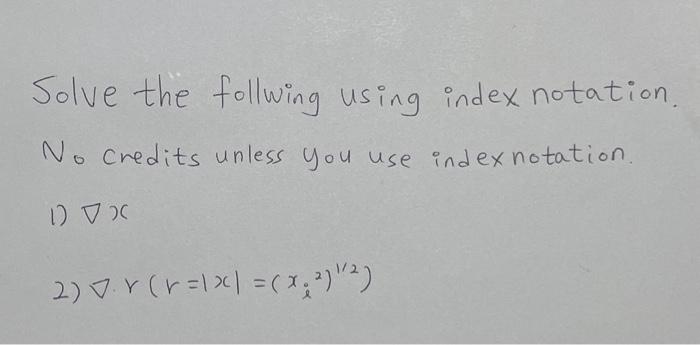 Solve the follwing using index notation.
No credits unless you use index notation.
1) ∇x
2) ∇.r (r=|x| =(xᵢ²)^1/2)